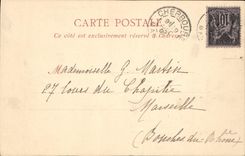 CARTE POSTALE
Ce côté est exclusivement réservé à l'adresse
CHERBOURG
Mademoiselle G. Martin
87 Cours du Chapitre
Marseille
(Bouches du Rhône)